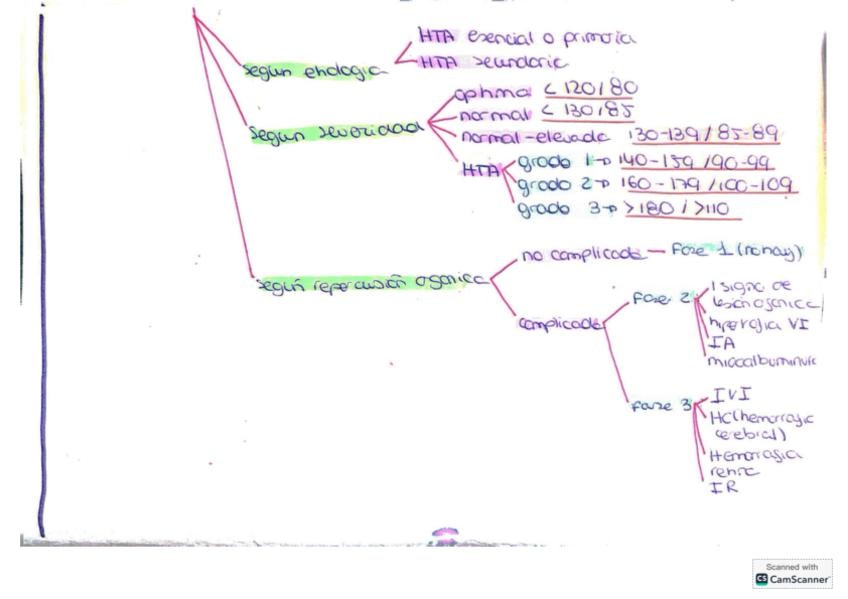 HTA esencial o primaria
según etiología
HTA secundaria
optima < 120/80
normal < 130/85
según severidad
normal-elevada 130-139/85-89
HTA
grado 1→ 140-159/90-99
grado 2→ 160-179/100-109
grado 3→ >180/>110
no complicada — Fase 1 (no hay)
según repercusión oganica
complicada
Fase 2
1 signo de
lesión oganica
IA
Fase 3
IVI
HC (hemorragia
cerebral)
Hemorragia
retina
IR
Scanned with
CS CamScanner